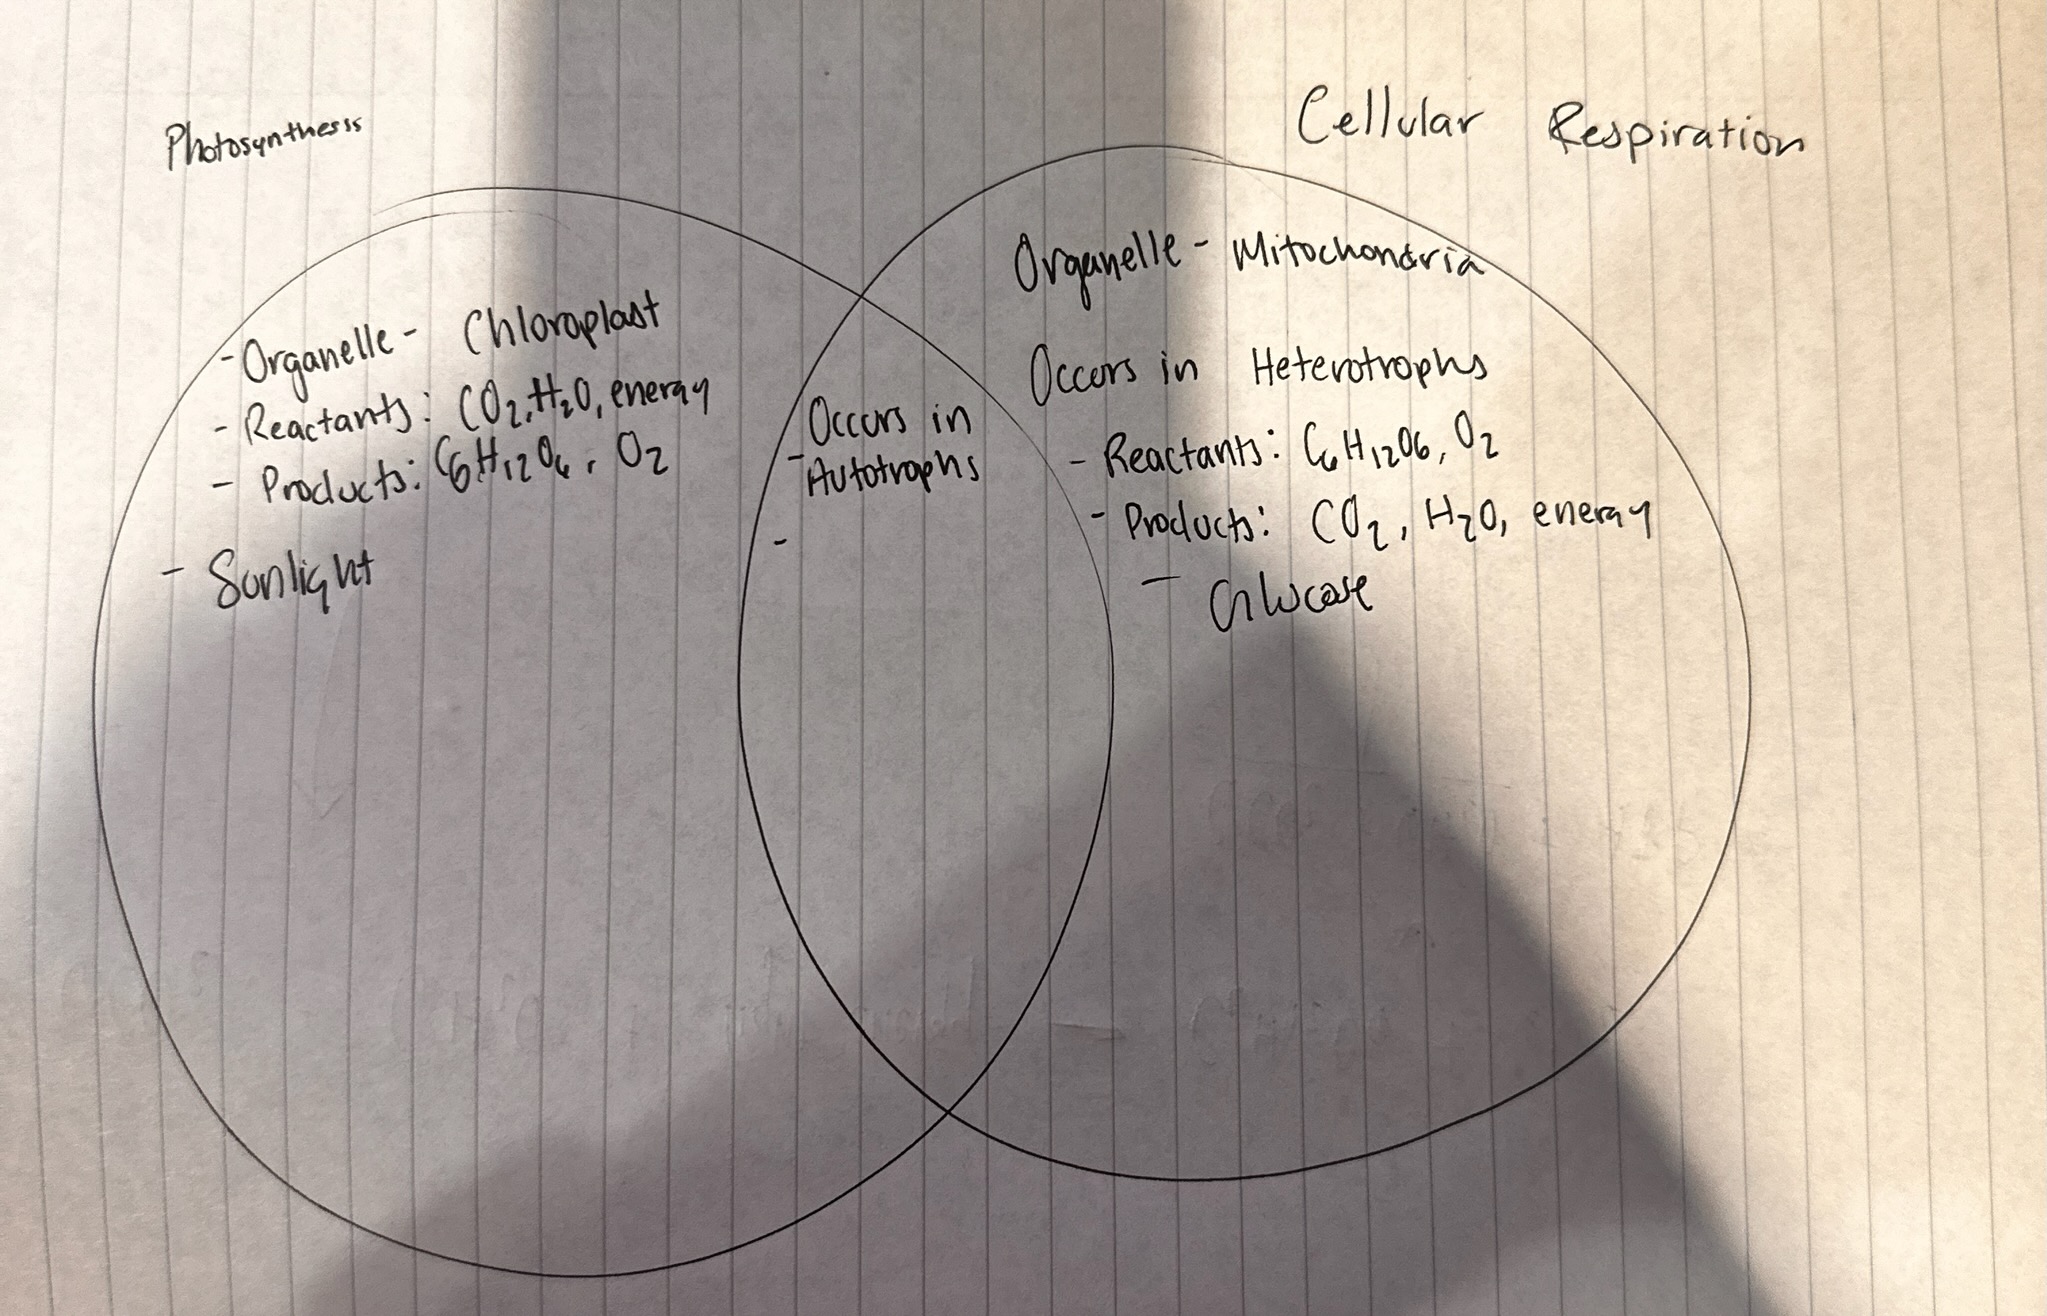 Photosynthesis
Cellular Respiration
- Organelle - Chloroplast
- Reactants: CO2, H2O, energy
- Products: C6H12O6, O2
- Sunlight
Occurs in
- Autotrophs
-
Organelle - Mitochondria
Occurs in Heterotrophs
- Reactants: C6H12O6, O2
- Products: CO2, H2O, energy
- Glucose